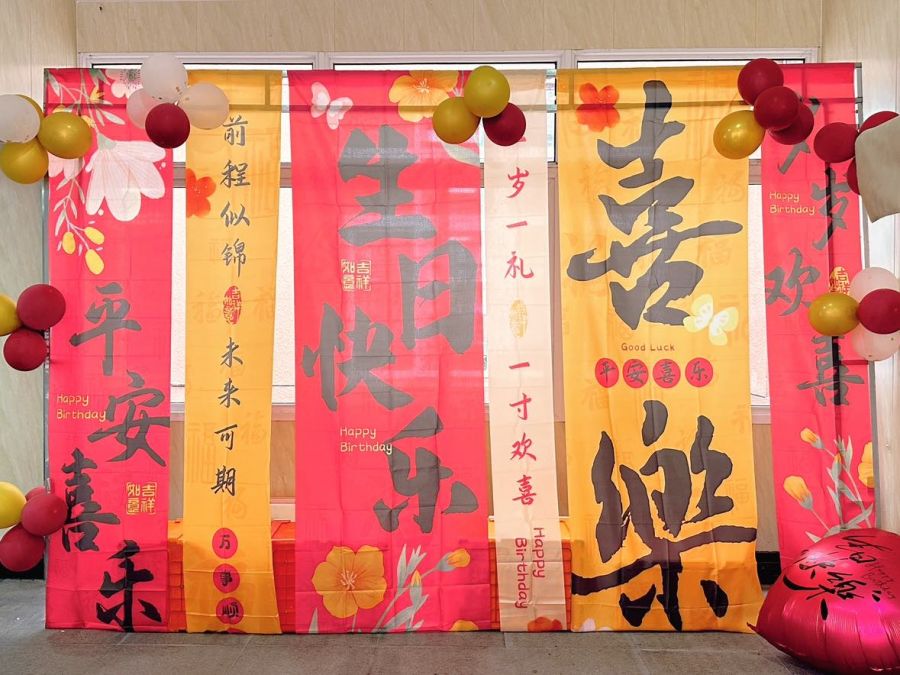 平安喜乐
Happy
Birthday
吉祥
如意
前程似锦
未来可期
万事顺
生日快乐
吉祥
如意
Happy
Birthday
岁一礼
一寸欢喜
Happy
Birthday
喜樂
Good Luck
平安喜乐
Happy
Birthday
岁欢喜